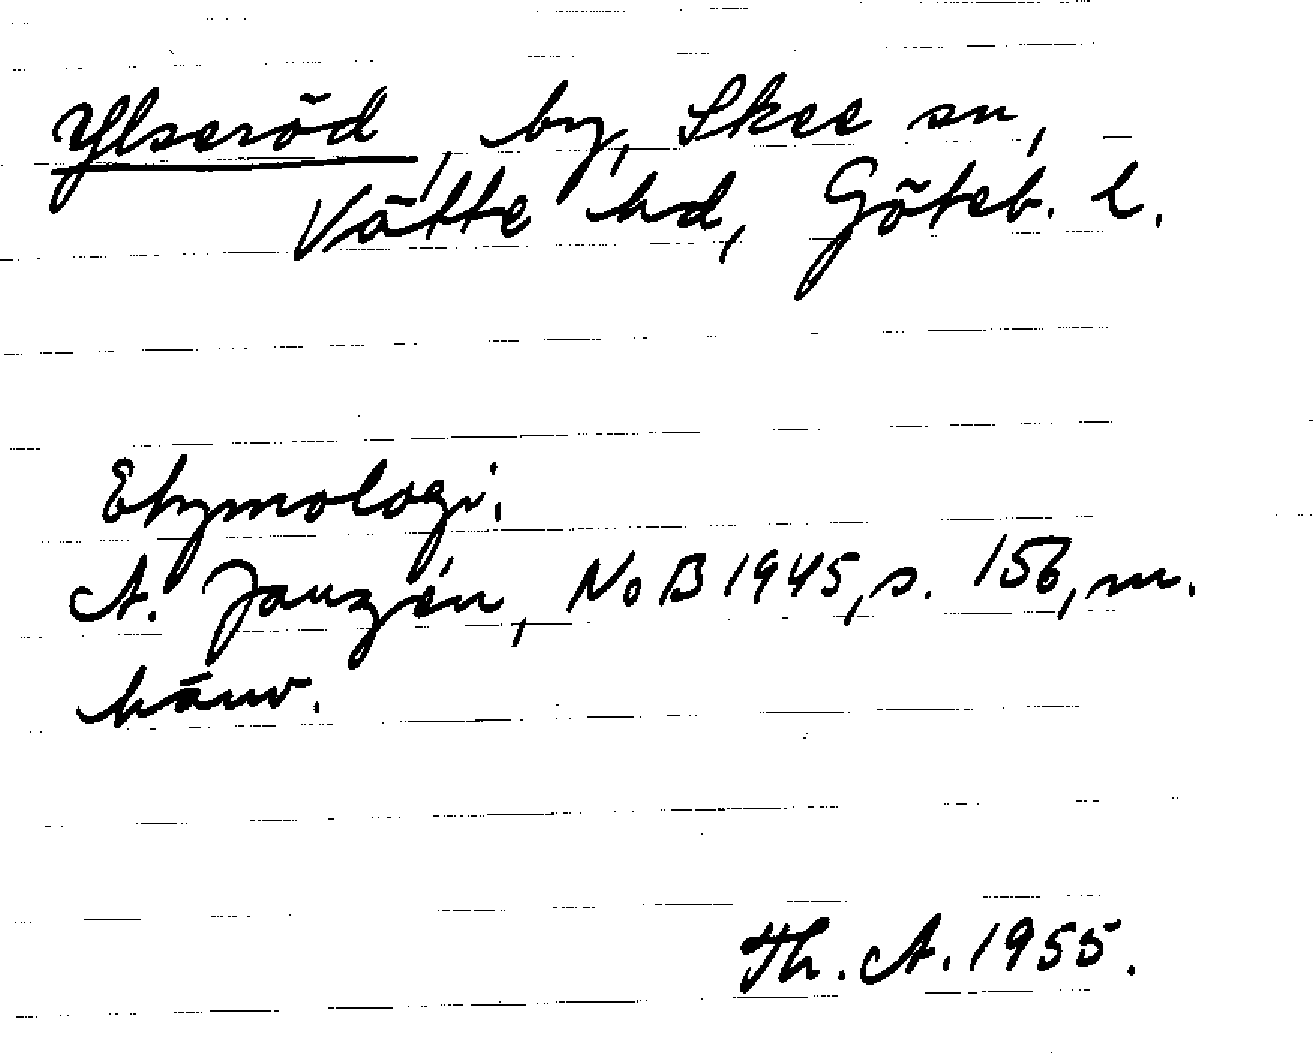 Ylseröd, by, Skee sn,
Vätte hd, Göteb. l.
Etymologi.
A. Janzén, NoB 1945, s. 156, m.
hänv.
Th. A. 1955.